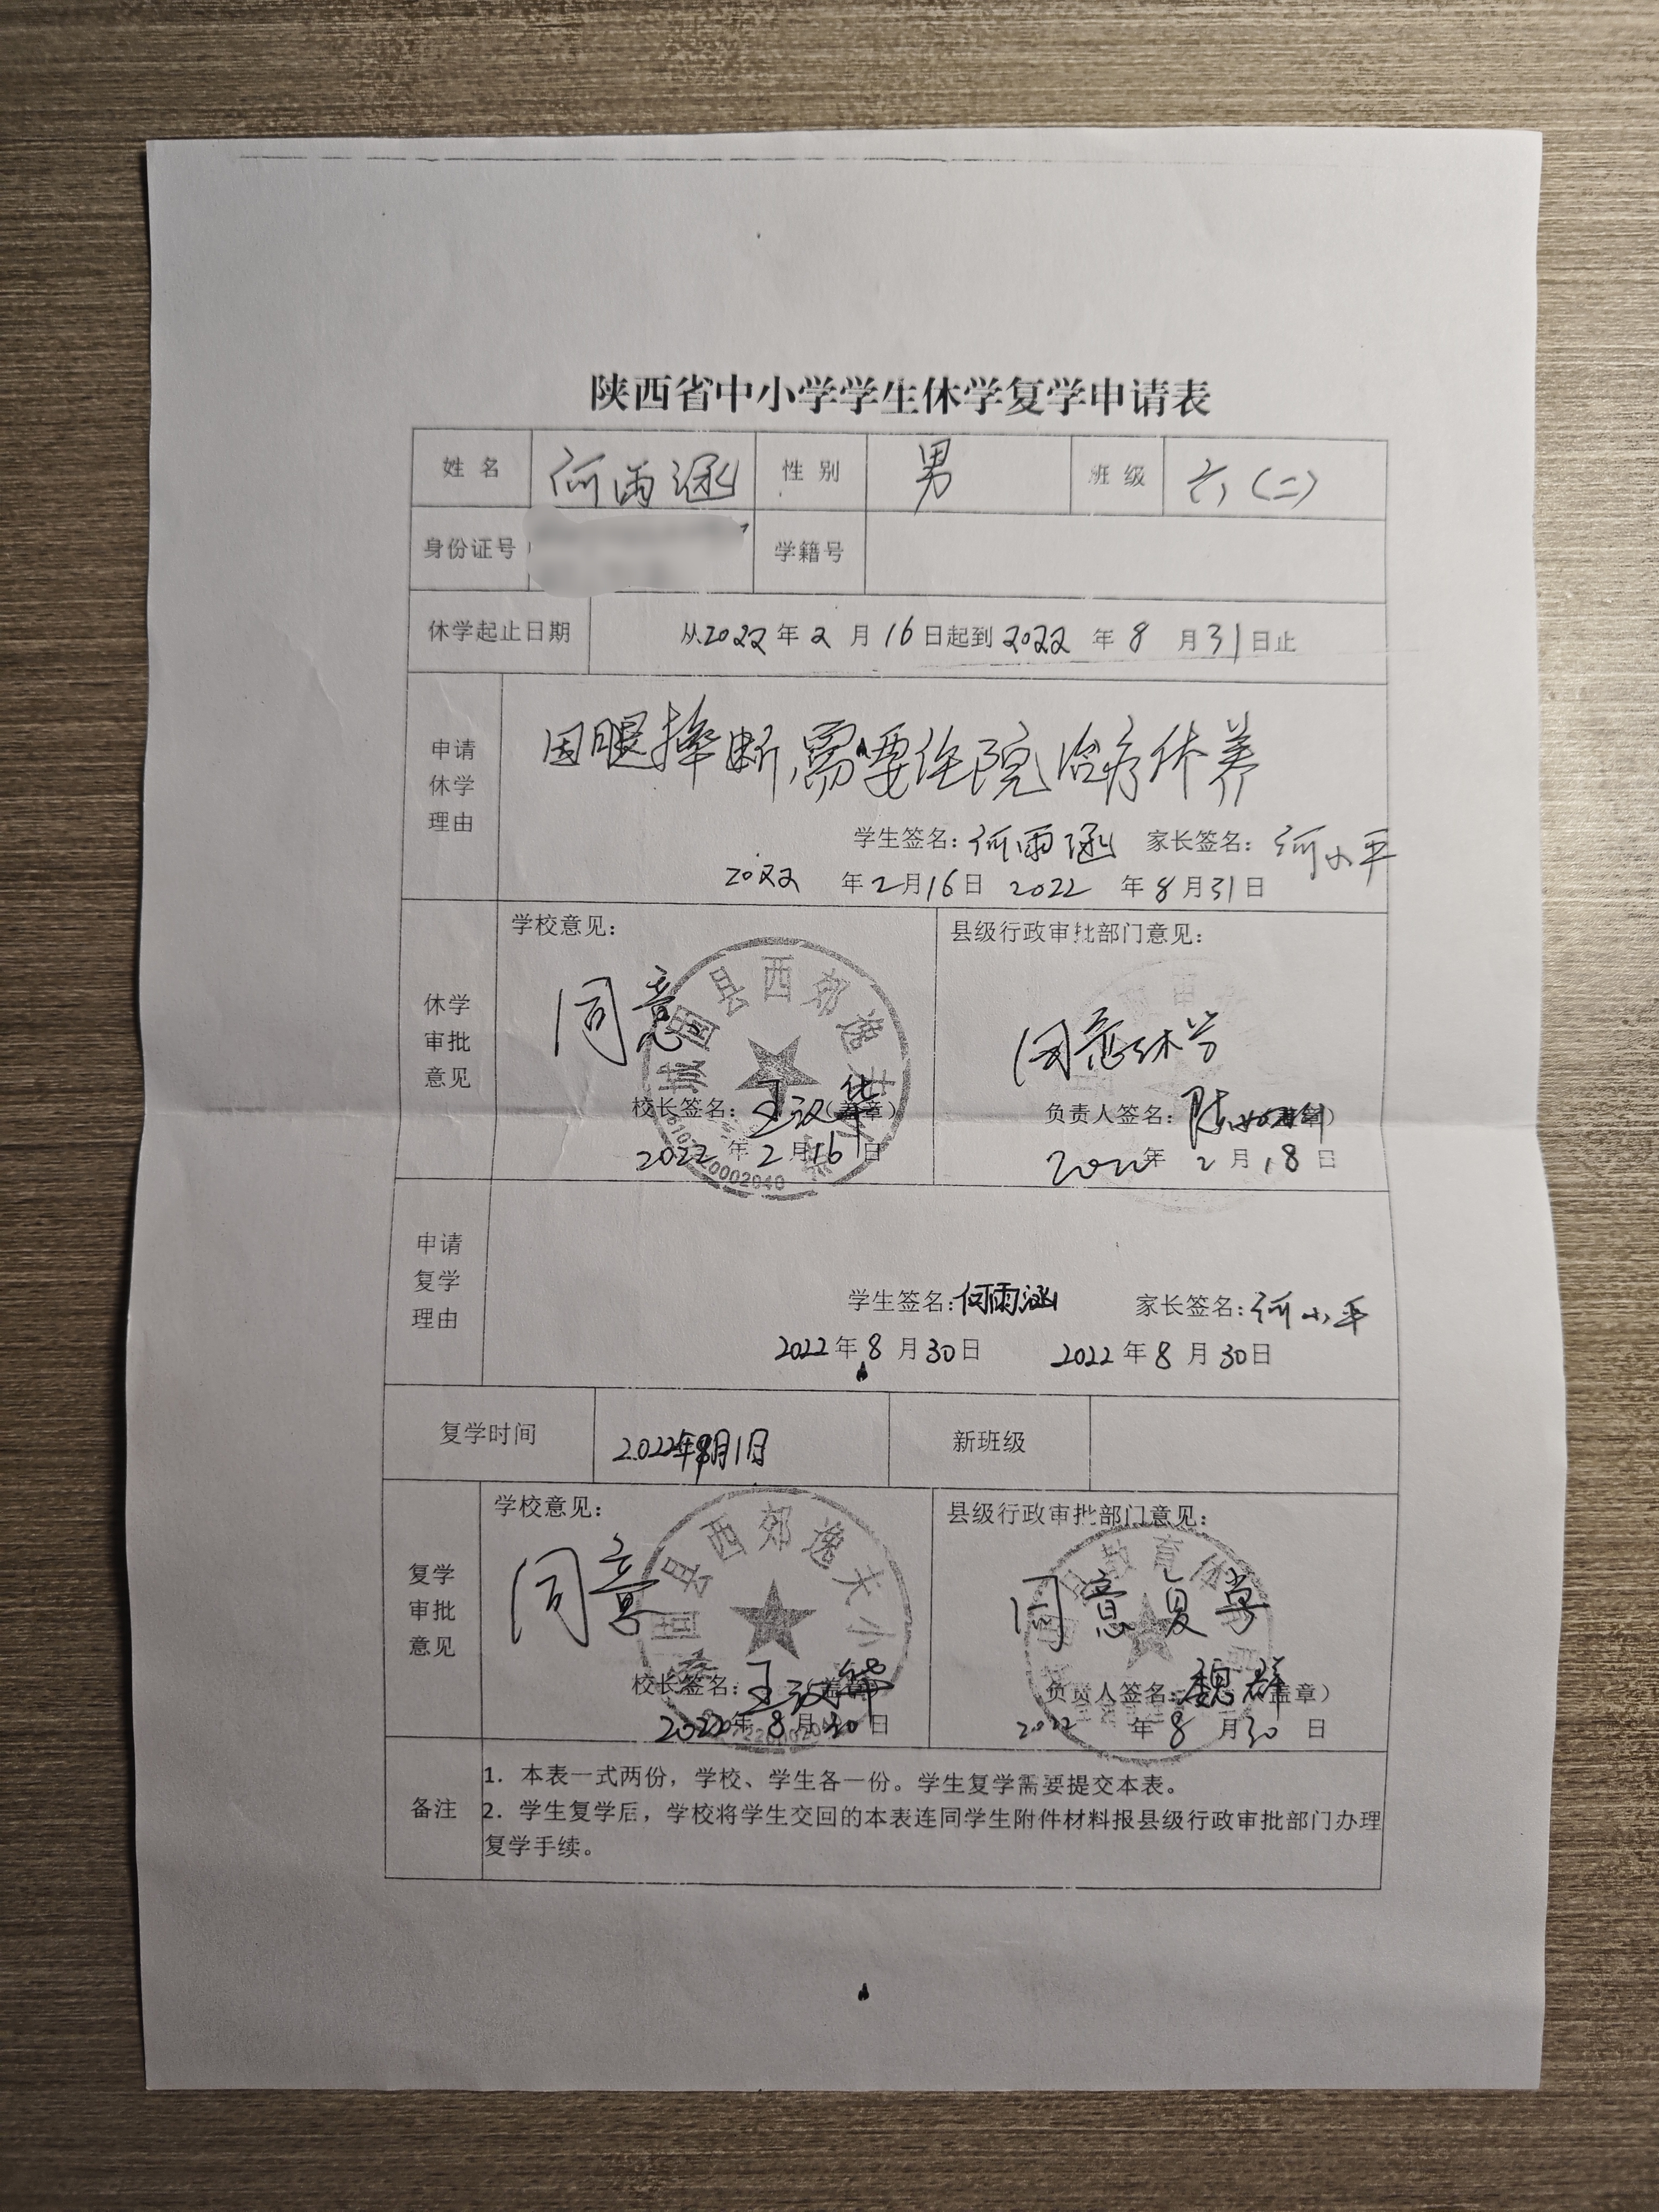 陕西省中小学学生休学复学申请表
姓 名 何雨涵 性 别 男 班 级 六(二)
身份证号 学籍号
休学起止日期 从2022年2月16日起到2022年8月31日止
申请休学理由 因腿摔断,需要住院治疗休养
学生签名:何雨涵 家长签名:何小平
2022年2月16日 2022年8月31日
休学审批意见
学校意见: 县级行政审批部门意见:
同意 同意休学
校长签名:王汉华(盖章) 负责人签名:陈
2022年2月16日 2022年2月18日
申请复学理由
学生签名:何雨涵 家长签名:何小平
2022年8月30日 2022年8月30日
复学时间 2022年9月1日 新班级
复学审批意见
学校意见: 县级行政审批部门意见:
县西郊逸夫小
同意 同意复学
校长签名:王汉华(盖章) 负责人签名:魏群(盖章)
2022年8月30日 2022年8月30日
备注
1. 本表一式两份，学校、学生各一份。学生复学需要提交本表。
2. 学生复学后，学校将学生交回的本表连同学生附件材料报县级行政审批部门办理
复学手续。